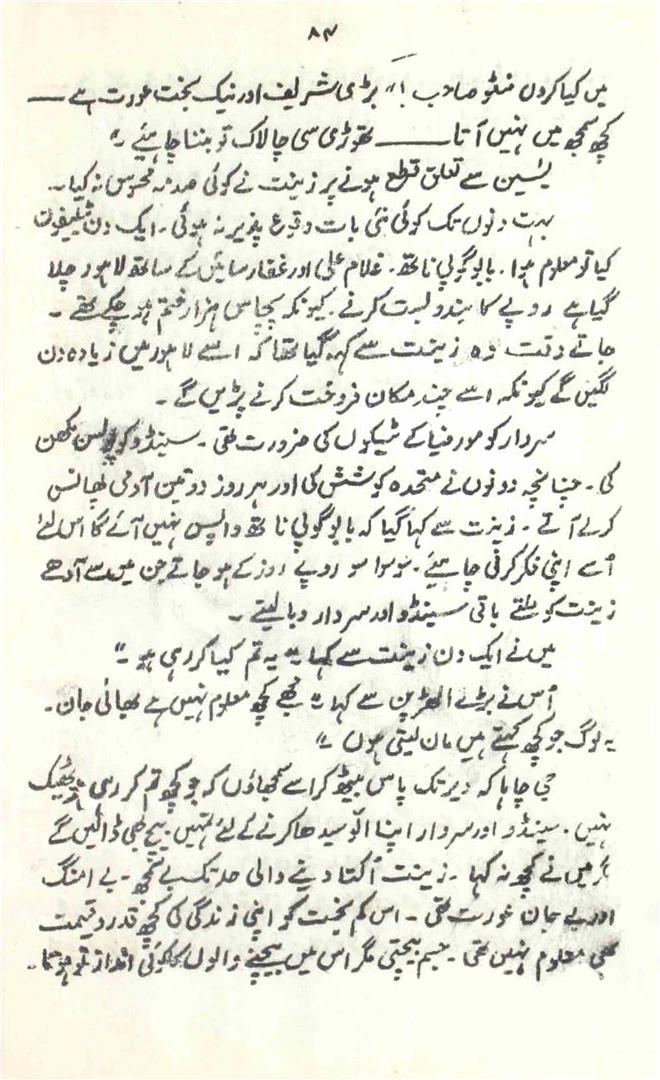 ۸۴
میں کیا کروں منٹو صاحب!" بڑی شریف اور نیک بخت عورت ہے ——
کچھ سمجھ میں نہیں آتا —— تھوڑی سی چالاک تو بننا چاہئیے۔"
یٰسین سے تعلق قطع ہونے پر زینت نے کوئی صدمہ محسوس نہ کیا۔
بہت دنوں تک کوئی نئی بات وقوع پذیر نہ ہوئی۔ ایک دن ٹیلیفون
کیا تو معلوم ہوا۔ بابو گوپی ناتھ۔ غلام علی اور غفار سائیں کے ساتھ لاہور چلا
گیا ہے روپے کا بندوبست کرنے۔ کیونکہ پچاس ہزار ختم ہو چکے تھے۔
جاتے وقت وہ زینت سے کہہ گیا تھا کہ اسے لاہور میں زیادہ دن
لگیں گے کیونکہ اسے چند مکان فروخت کرنے پڑیں گے۔
سردار کو مورفیا کے ٹیکوں کی ضرورت تھی۔ سینڈو کو پولسن مکھن
کی۔ چنانچہ دونوں نے متحدہ کوشش کی اور ہر روز دو تین آدمی پھانس
کر لے آتے۔ زینت سے کہا گیا کہ بابو گوپی ناتھ واپس نہیں آئے گا اس لئے
اُسے اپنی فکر کرنی چاہیئے۔ سو سوا سو روپے روز کے ہو جاتے جن میں سے آدھے
زینت کو ملتے باقی سینڈو اور سردار دبا لیتے۔
میں نے ایک دن زینت سے کہا۔ "یہ تم کیا کر رہی ہو۔"
اُس نے بڑے الھڑپن سے کہا "مجھے کچھ معلوم نہیں ہے بھائی جان۔
یہ لوگ جو کچھ کہتے ہیں مان لیتی ہوں۔"
جی چاہا کہ دیر تک پاس بیٹھ کر اسے سمجھاؤں کہ جو کچھ تم کر رہی ہو ٹھیک
نہیں۔ سینڈو اور سردار اپنا الّو سیدھا کرنے کے لئے تمہیں بیچ بھی ڈالیں گے
مگر میں نے کچھ نہ کہا۔ زینت اُکتا دینے والی حد تک بے سمجھ۔ بے امنگ
اور بے جان عورت تھی۔ اس کم بخت کو اپنی زندگی کی کچھ قدر و قیمت
بھی معلوم نہیں تھی۔ جسم بیچتی مگر اس میں بیچنے والوں کا کوئی انداز تو ہوتا۔